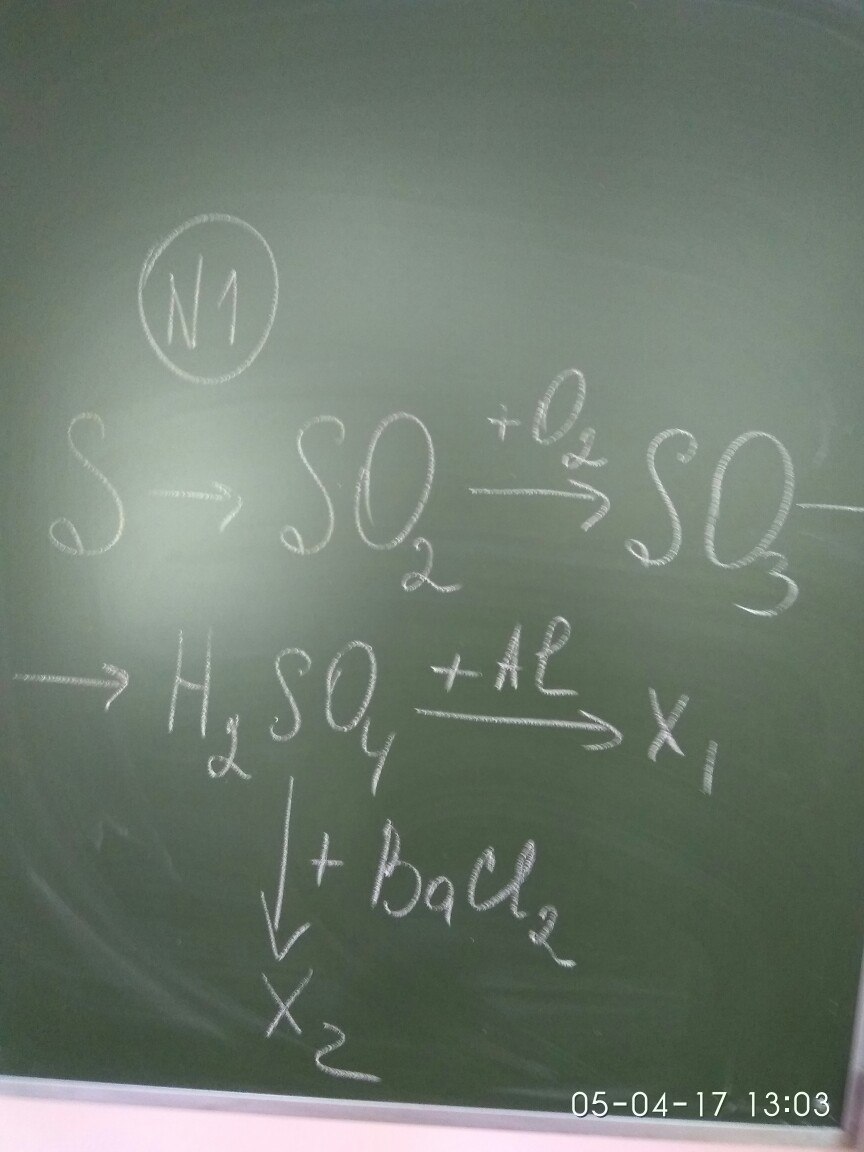 N1
S → SO₂ +O₂ → SO₃ —
→ H₂SO₄ +Al → X₁
↓ + BaCl₂
X₂
05-04-17 13:03